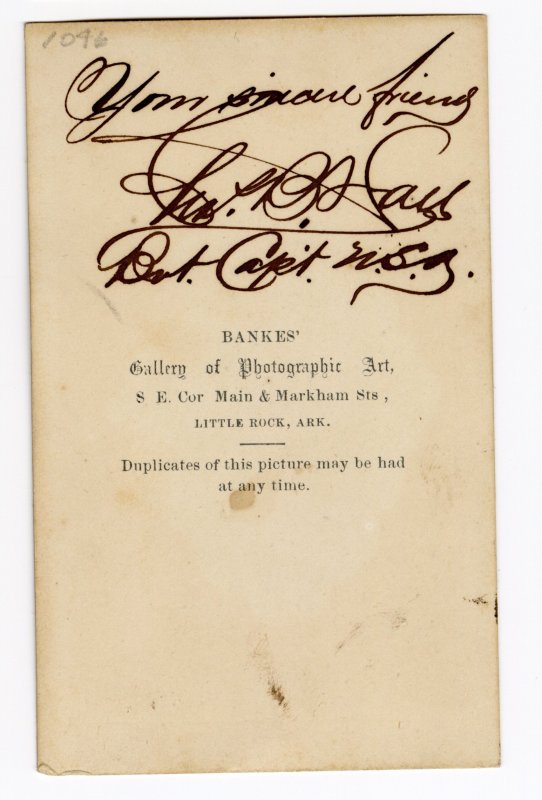 1096
Your sincere friend
B.
Bvt. Capt. U.S.A.
BANKES'
Gallery of Photographic Art,
S E. Cor Main & Markham Sts ,
LITTLE ROCK, ARK.
Duplicates of this picture may be had
at any time.